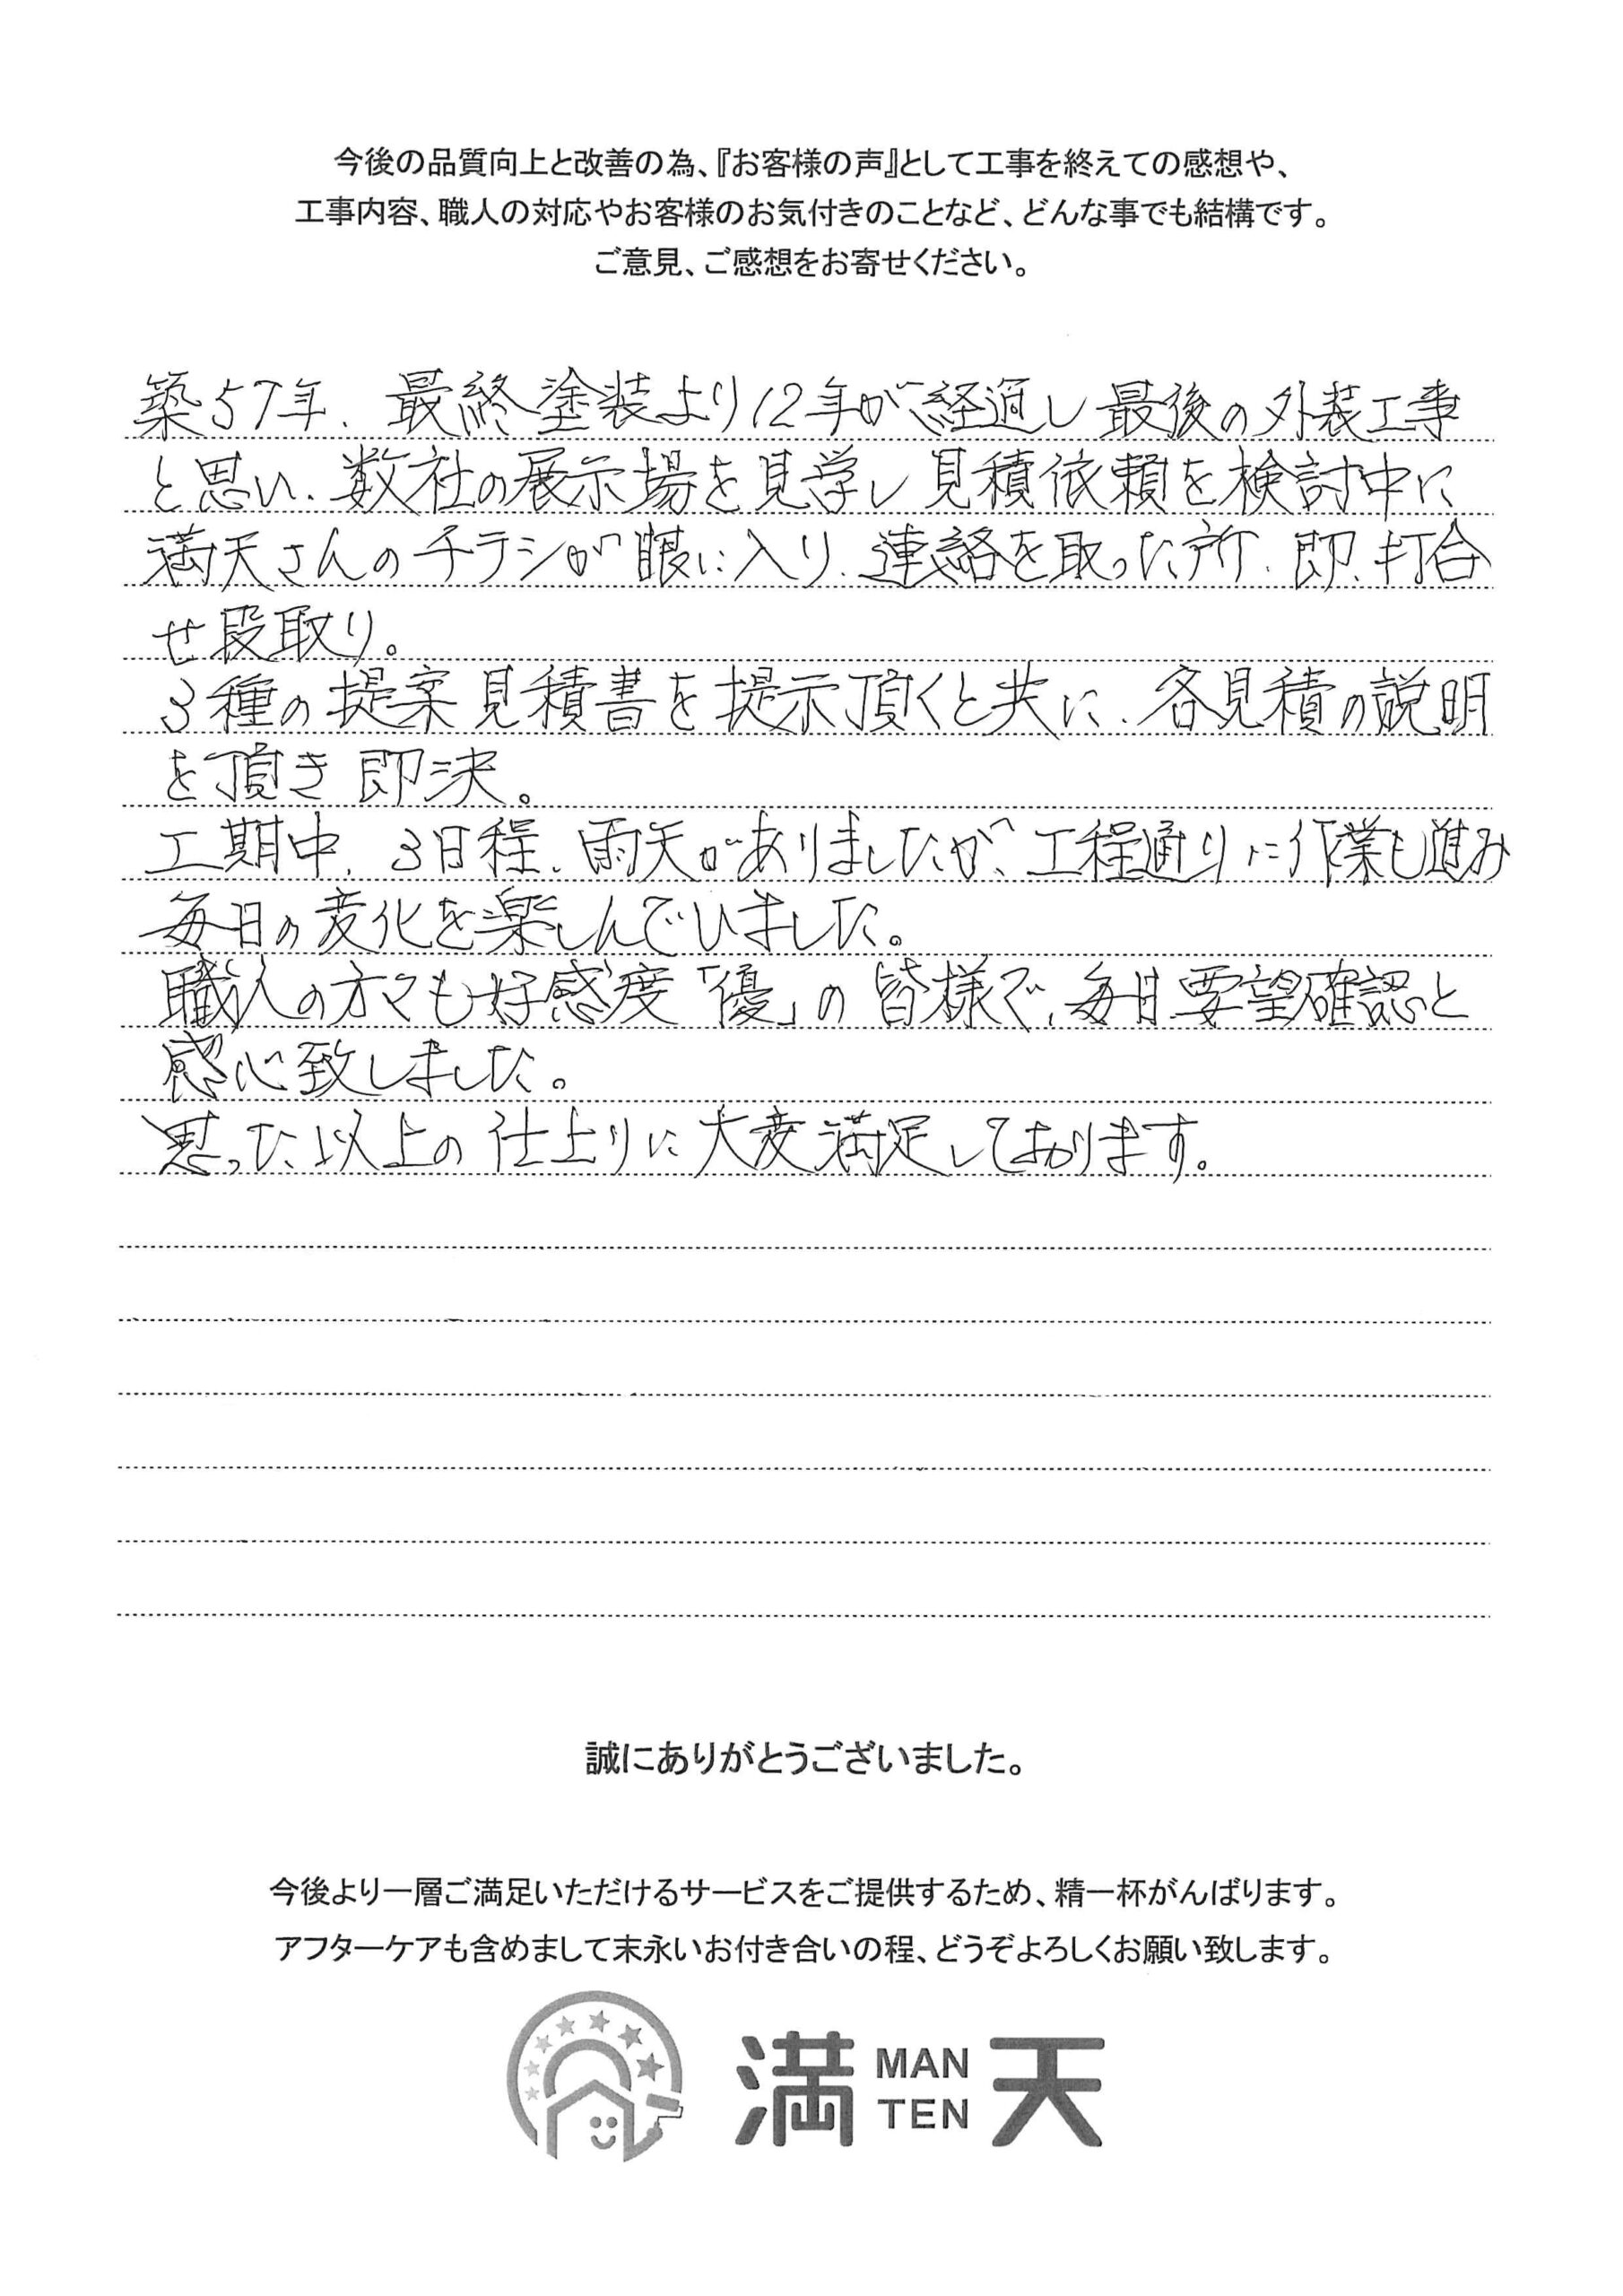 今後の品質向上と改善の為、『お客様の声』として工事を終えての感想や、
工事内容、職人の対応やお客様のお気付きのことなど、どんな事でも結構です。
ご意見、ご感想をお寄せください。
築57年、最終塗装より12年が経過し最後の外装工事
と思い、数社の展示場を見学し見積依頼を検討中に
満天さんのチラシが眼に入り、連絡を取った所、即、打合
せ段取り。
3種の提案見積書を提示頂くと共に、各見積の説明
を頂き即決。
工期中、3日程、雨天がありましたが、工程通りに作業も進み
毎日の変化を楽しんでいました。
職人の方々も好感度「優」の皆様で、毎日要望確認と
感心致しました。
思った以上の仕上りに大変満足しております。
誠にありがとうございました。
今後より一層ご満足いただけるサービスをご提供するため、精一杯がんばります。
アフターケアも含めまして末永いお付き合いの程、どうぞよろしくお願い致します。
満 MAN TEN 天